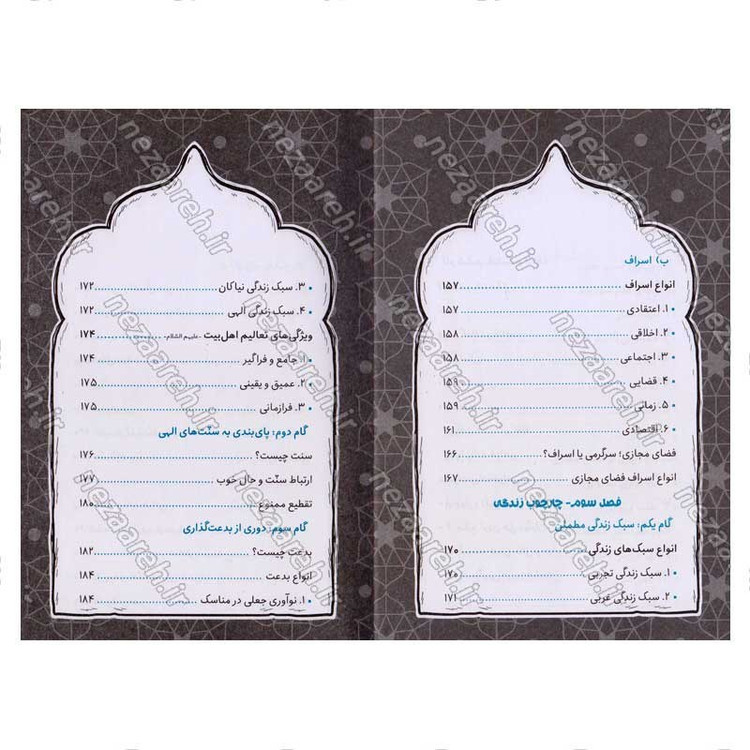 ب) اسراف
انواع اسراف ........ ۱۵۷
• ۱. اعتقادی ........ ۱۵۷
• ۲. اخلاقی ........ ۱۵۸
• ۳. اجتماعی ........ ۱۵۸
• ۴. قضایی ........ ۱۵۹
• ۵. زمانی ........ ۱۵۹
• ۶. اقتصادی ........ ۱۶۱
فضای مجازی؛ سرگرمی یا اسراف؟ ........ ۱۶۶
انواع اسراف فضای مجازی ........ ۱۶۷
فصل سوم- چارچوب زندگی
گام یکم: سبک زندگی مطمئن
انواع سبک‌های زندگی ........ ۱۷۰
• ۱. سبک زندگی تجربی ........ ۱۷۰
• ۲. سبک زندگی غربی ........ ۱۷۱
• ۳. سبک زندگی نیاکان ........ ۱۷۲
• ۴. سبک زندگی الهی ........ ۱۷۲
ویژگی‌های تعالیم اهل‌بیت -علیهم السلام- ........ ۱۷۴
• ۱. جامع و فراگیر ........ ۱۷۴
• ۲. عمیق و یقینی ........ ۱۷۵
• ۳. فرازمانی ........ ۱۷۵
گام دوم: پای‌بندی به سنّت‌های الهی
سنت چیست؟ ........ ۱۷۶
ارتباط سنّت و حال خوب ........ ۱۷۷
تقطیع ممنوع ........ ۱۸۰
گام سوم: دوری از بدعت‌گذاری
بدعت چیست؟ ........ ۱۸۲
انواع بدعت ........ ۱۸۴
• ۱. نوآوری جعلی در مناسک ........ ۱۸۴
nezaareh.ir